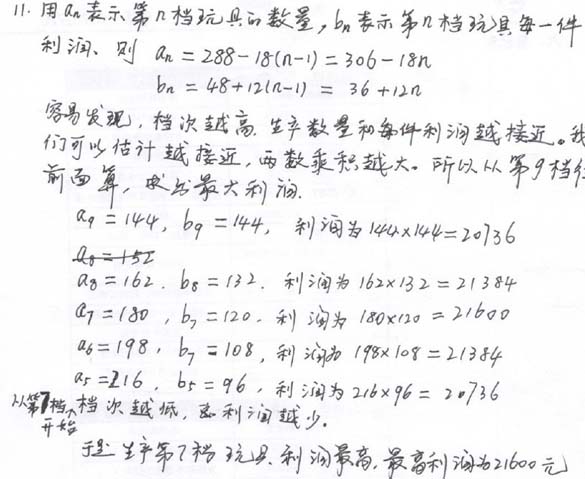 11. 用an表示第n档玩具的数量，bn表示第n档玩具每一件
利润、则 an = 288-18(n-1) = 306-18n
bn = 48+12(n-1) = 36+12n
容易发现，档次越高，生产数量和每件利润越接近。我
们可以估计越接近，两数乘积越大。所以从第9档往
前面算，求出最大利润.
a9 = 144, b9 = 144, 利润为144×144=20736
a8=152
a8 = 162. b8 = 132. 利润为162×132=21384
a7 = 180, b7 = 120. 利润为180×120=21600
a6 = 198, b7 = 108, 利润为198×108=21384
a5 = 216. b5 = 96, 利润为216×96=20736
从第7档开始档次越低, 总利润越少.
于是生产第7档玩具利润最高,最高利润为21600元